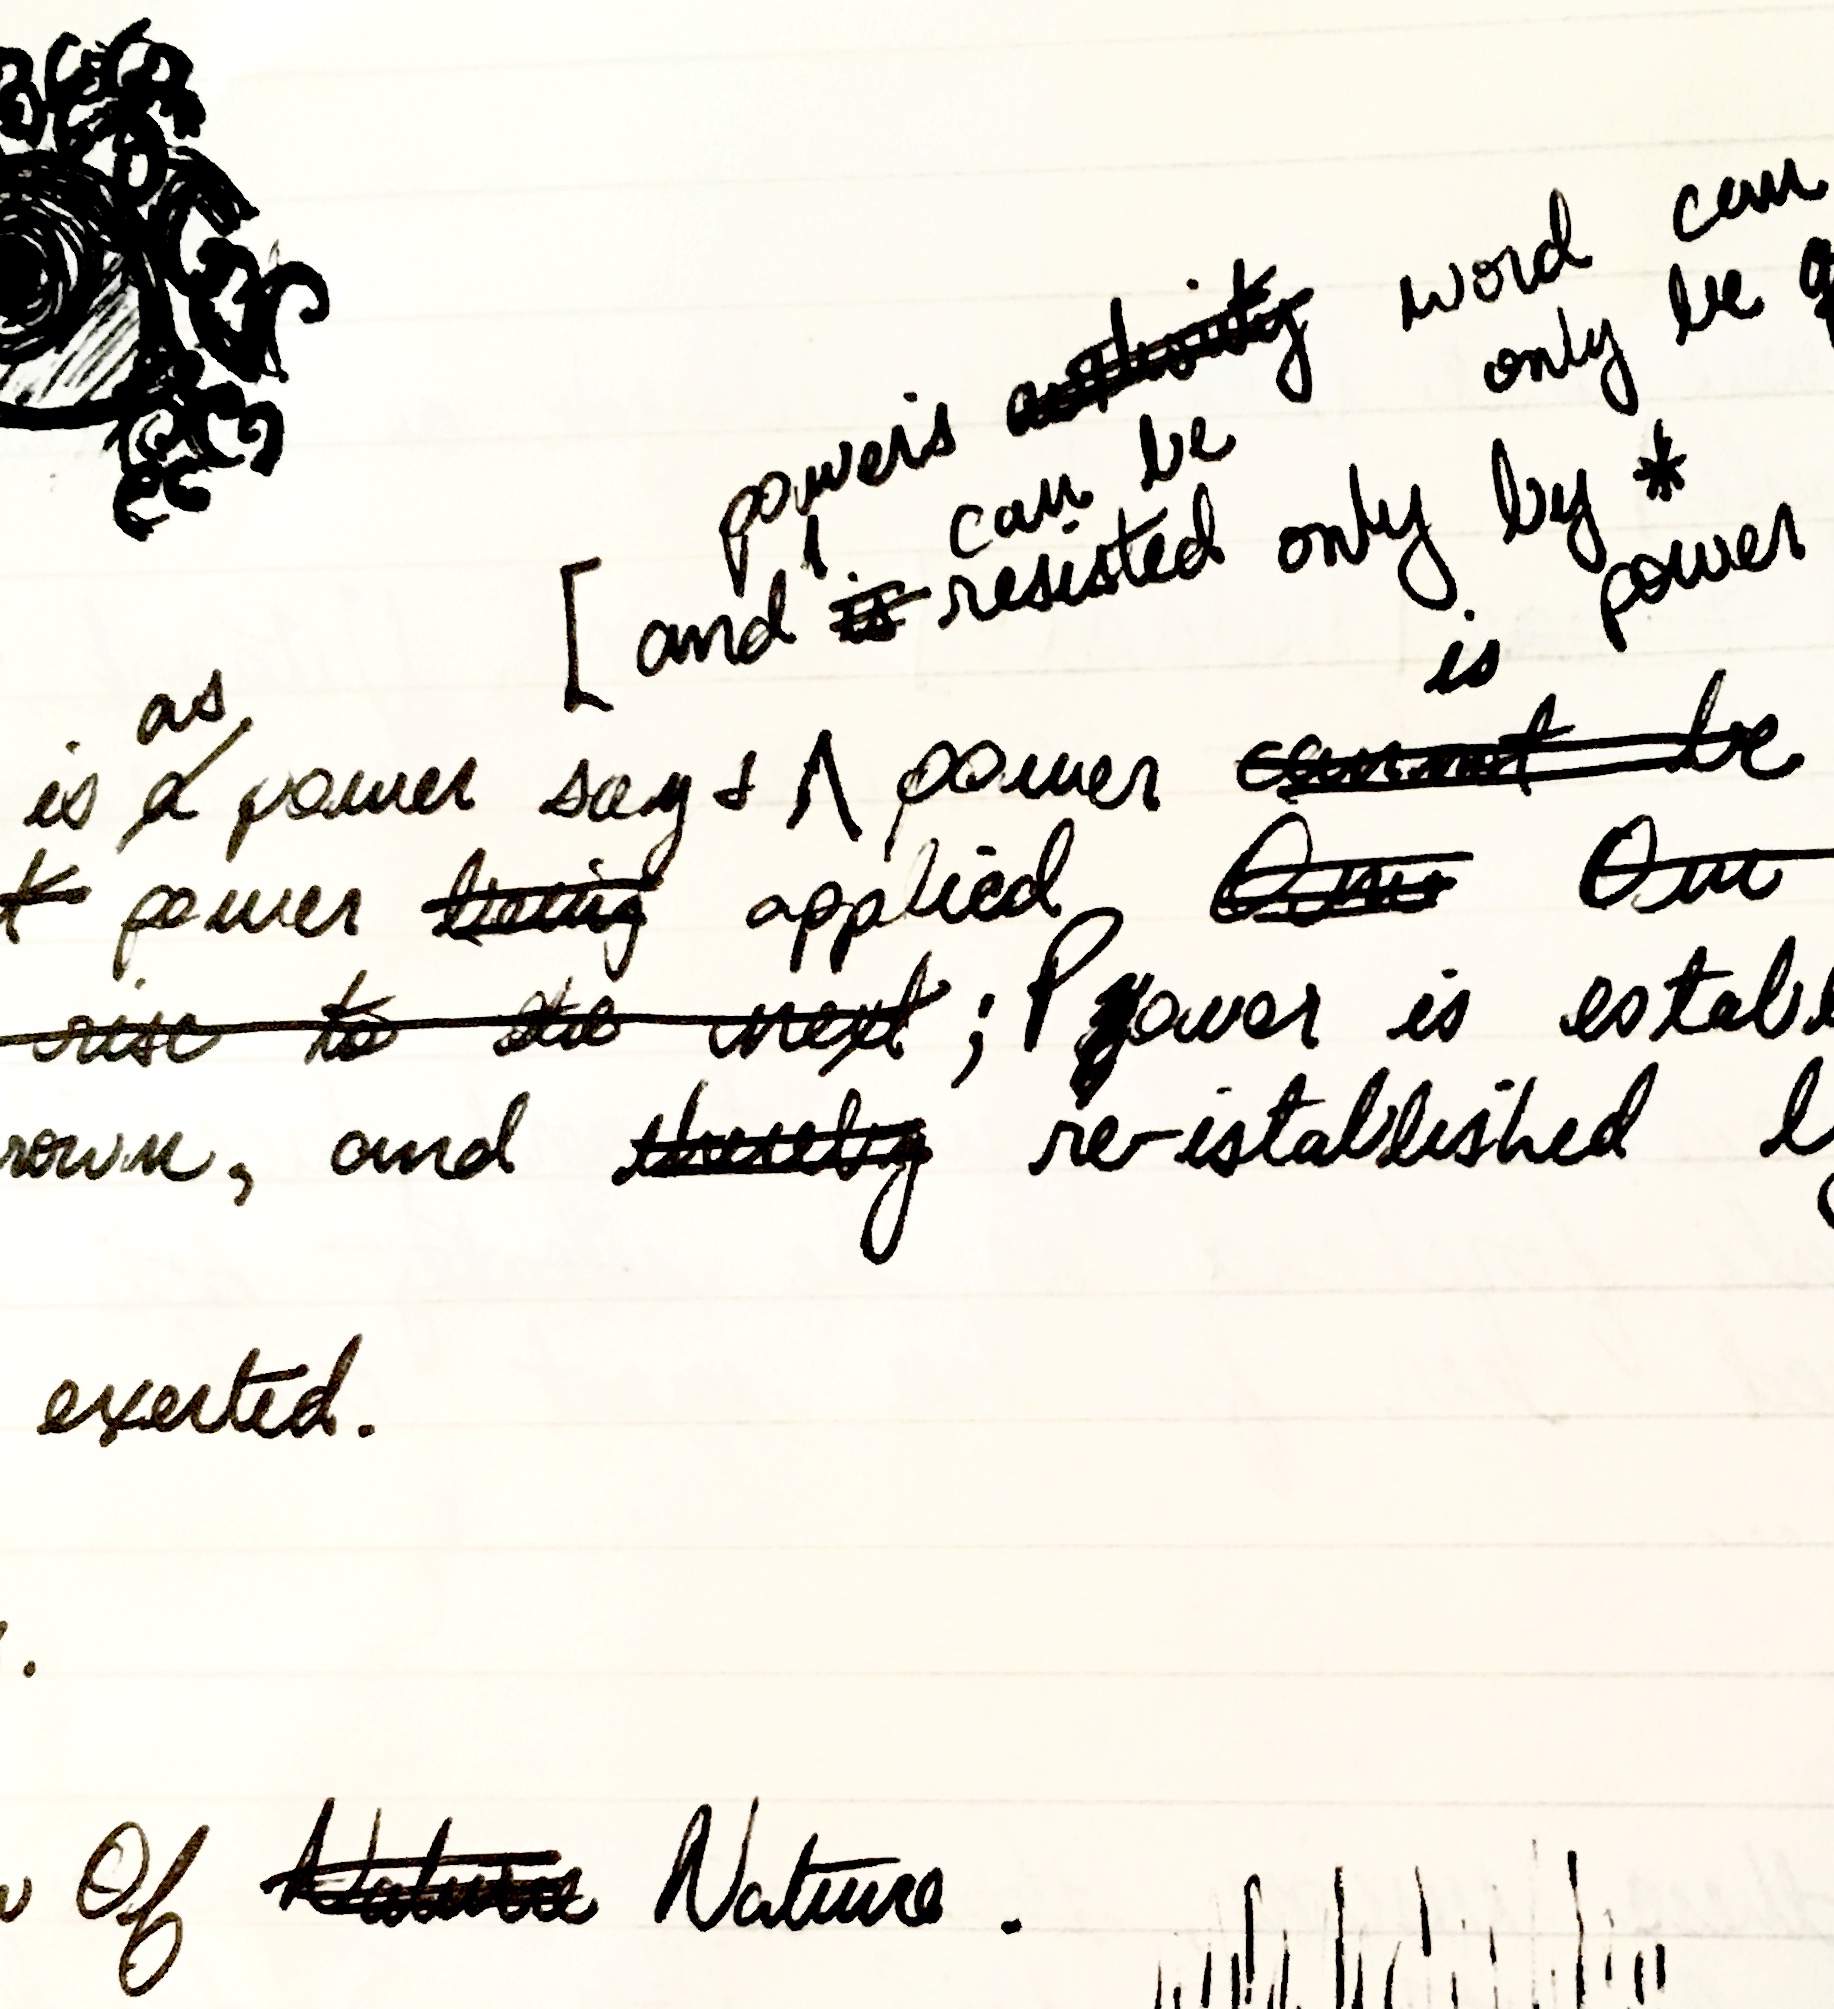 power's authority word can
can be only be
[ and is resisted only by *
power
as is
is a power says Λ power cannot be
power being applied One One
rise to the next ; Power is establ
rown, and thereby re-istablished
exerted.
Of Nature Nature.